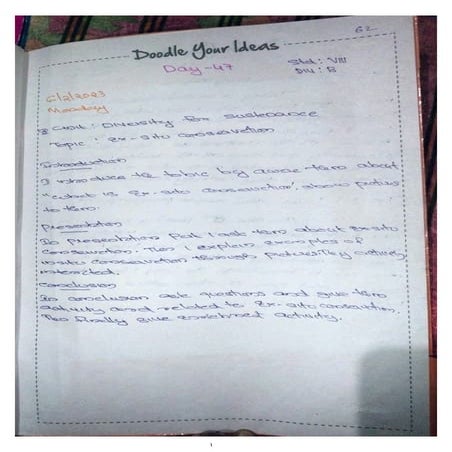 62
Doodle Your Ideas
Day - 47
Std : VIII
Div : B
6/2/2023
Monday
Unit : Diversity for sustenance
Topic : Ex-situ conservation
Introduction
I introduce the topic by asking them about
"what is Ex-situ conservation", show
to them.
Presentation
In presentation I ask them about Ex-situ
conservation. Then I explain examples of
insitu conservation through pictures. They actively
interacted.
Conclusion
In conclusion ask questions and give them
activity and related to Ex-situ conservation.
Then finally give enrichment activity.